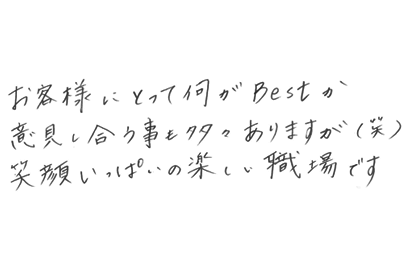 お客様にとって何がBestか
意見し合う事も多々ありますが(笑)
笑顔いっぱいの楽しい職場です